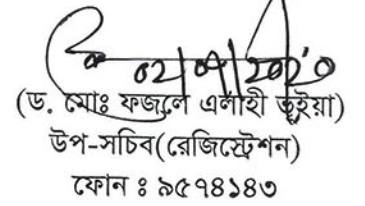 02/09/2020
(ড. মোঃ ফজলে এলাহী ভূইয়া)
উপ-সচিব(রেজিস্ট্রেশন)
ফোন ঃ ৯৫৭৪১৪৩